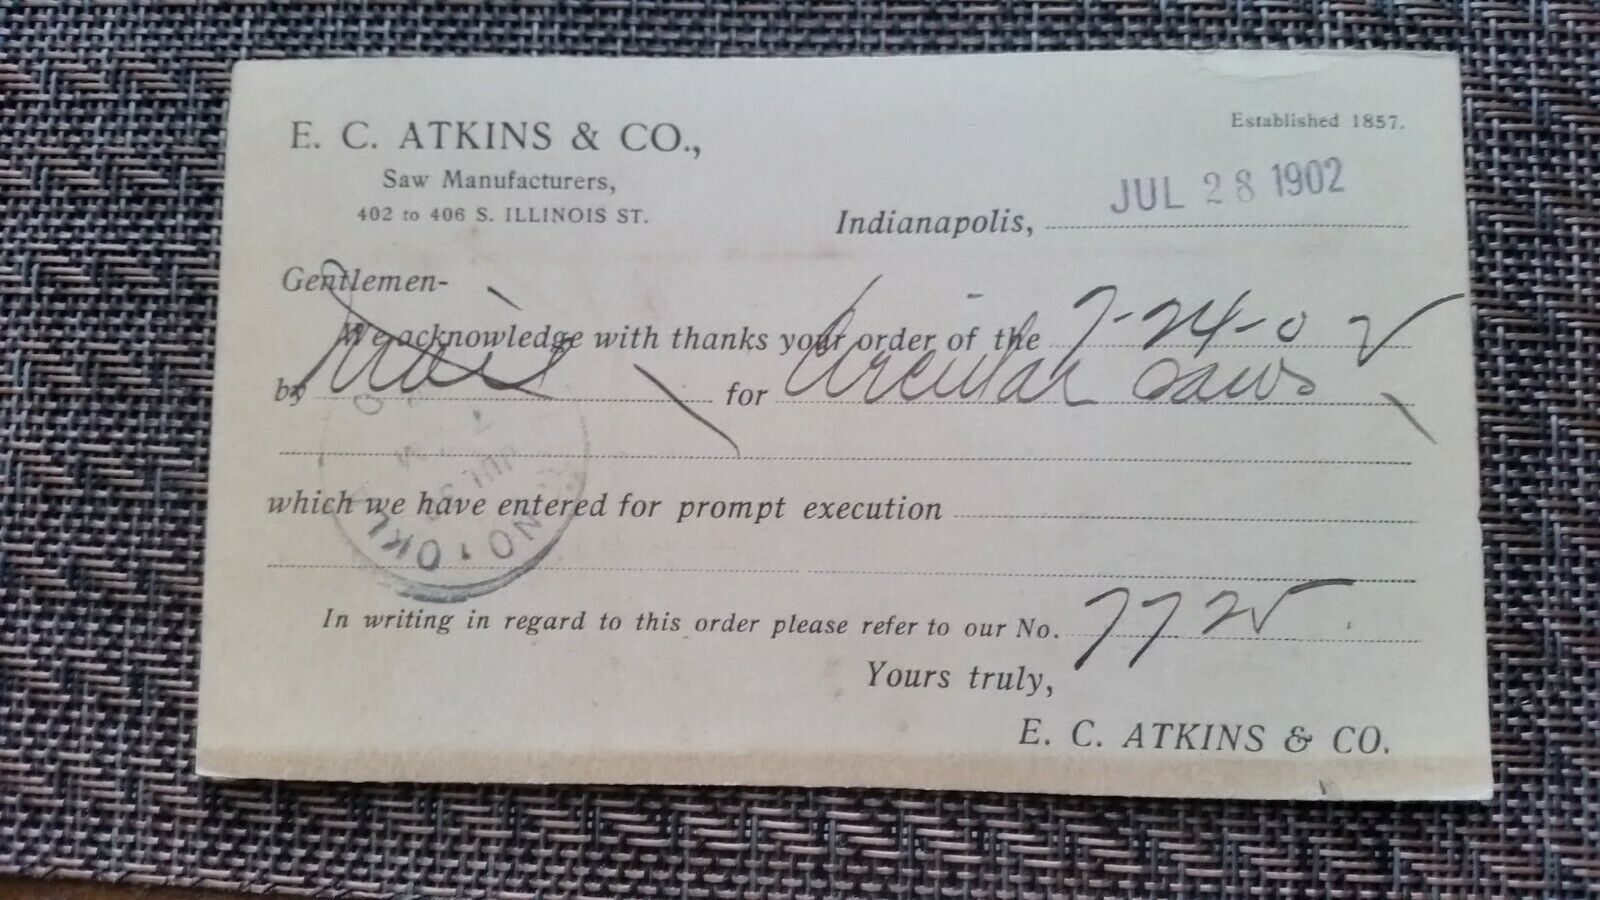 E. C. ATKINS & CO.,
Saw Manufacturers,
402 to 406 S. ILLINOIS ST.
Established 1857.
Indianapolis, JUL 28 1902
Gentlemen-
We acknowledge with thanks your order of the 7-24-02
by Mail for Circular Saws
which we have entered for prompt execution
In writing in regard to this order please refer to our No. 7725
Yours truly,
E. C. ATKINS & CO.
OKLA
JUL